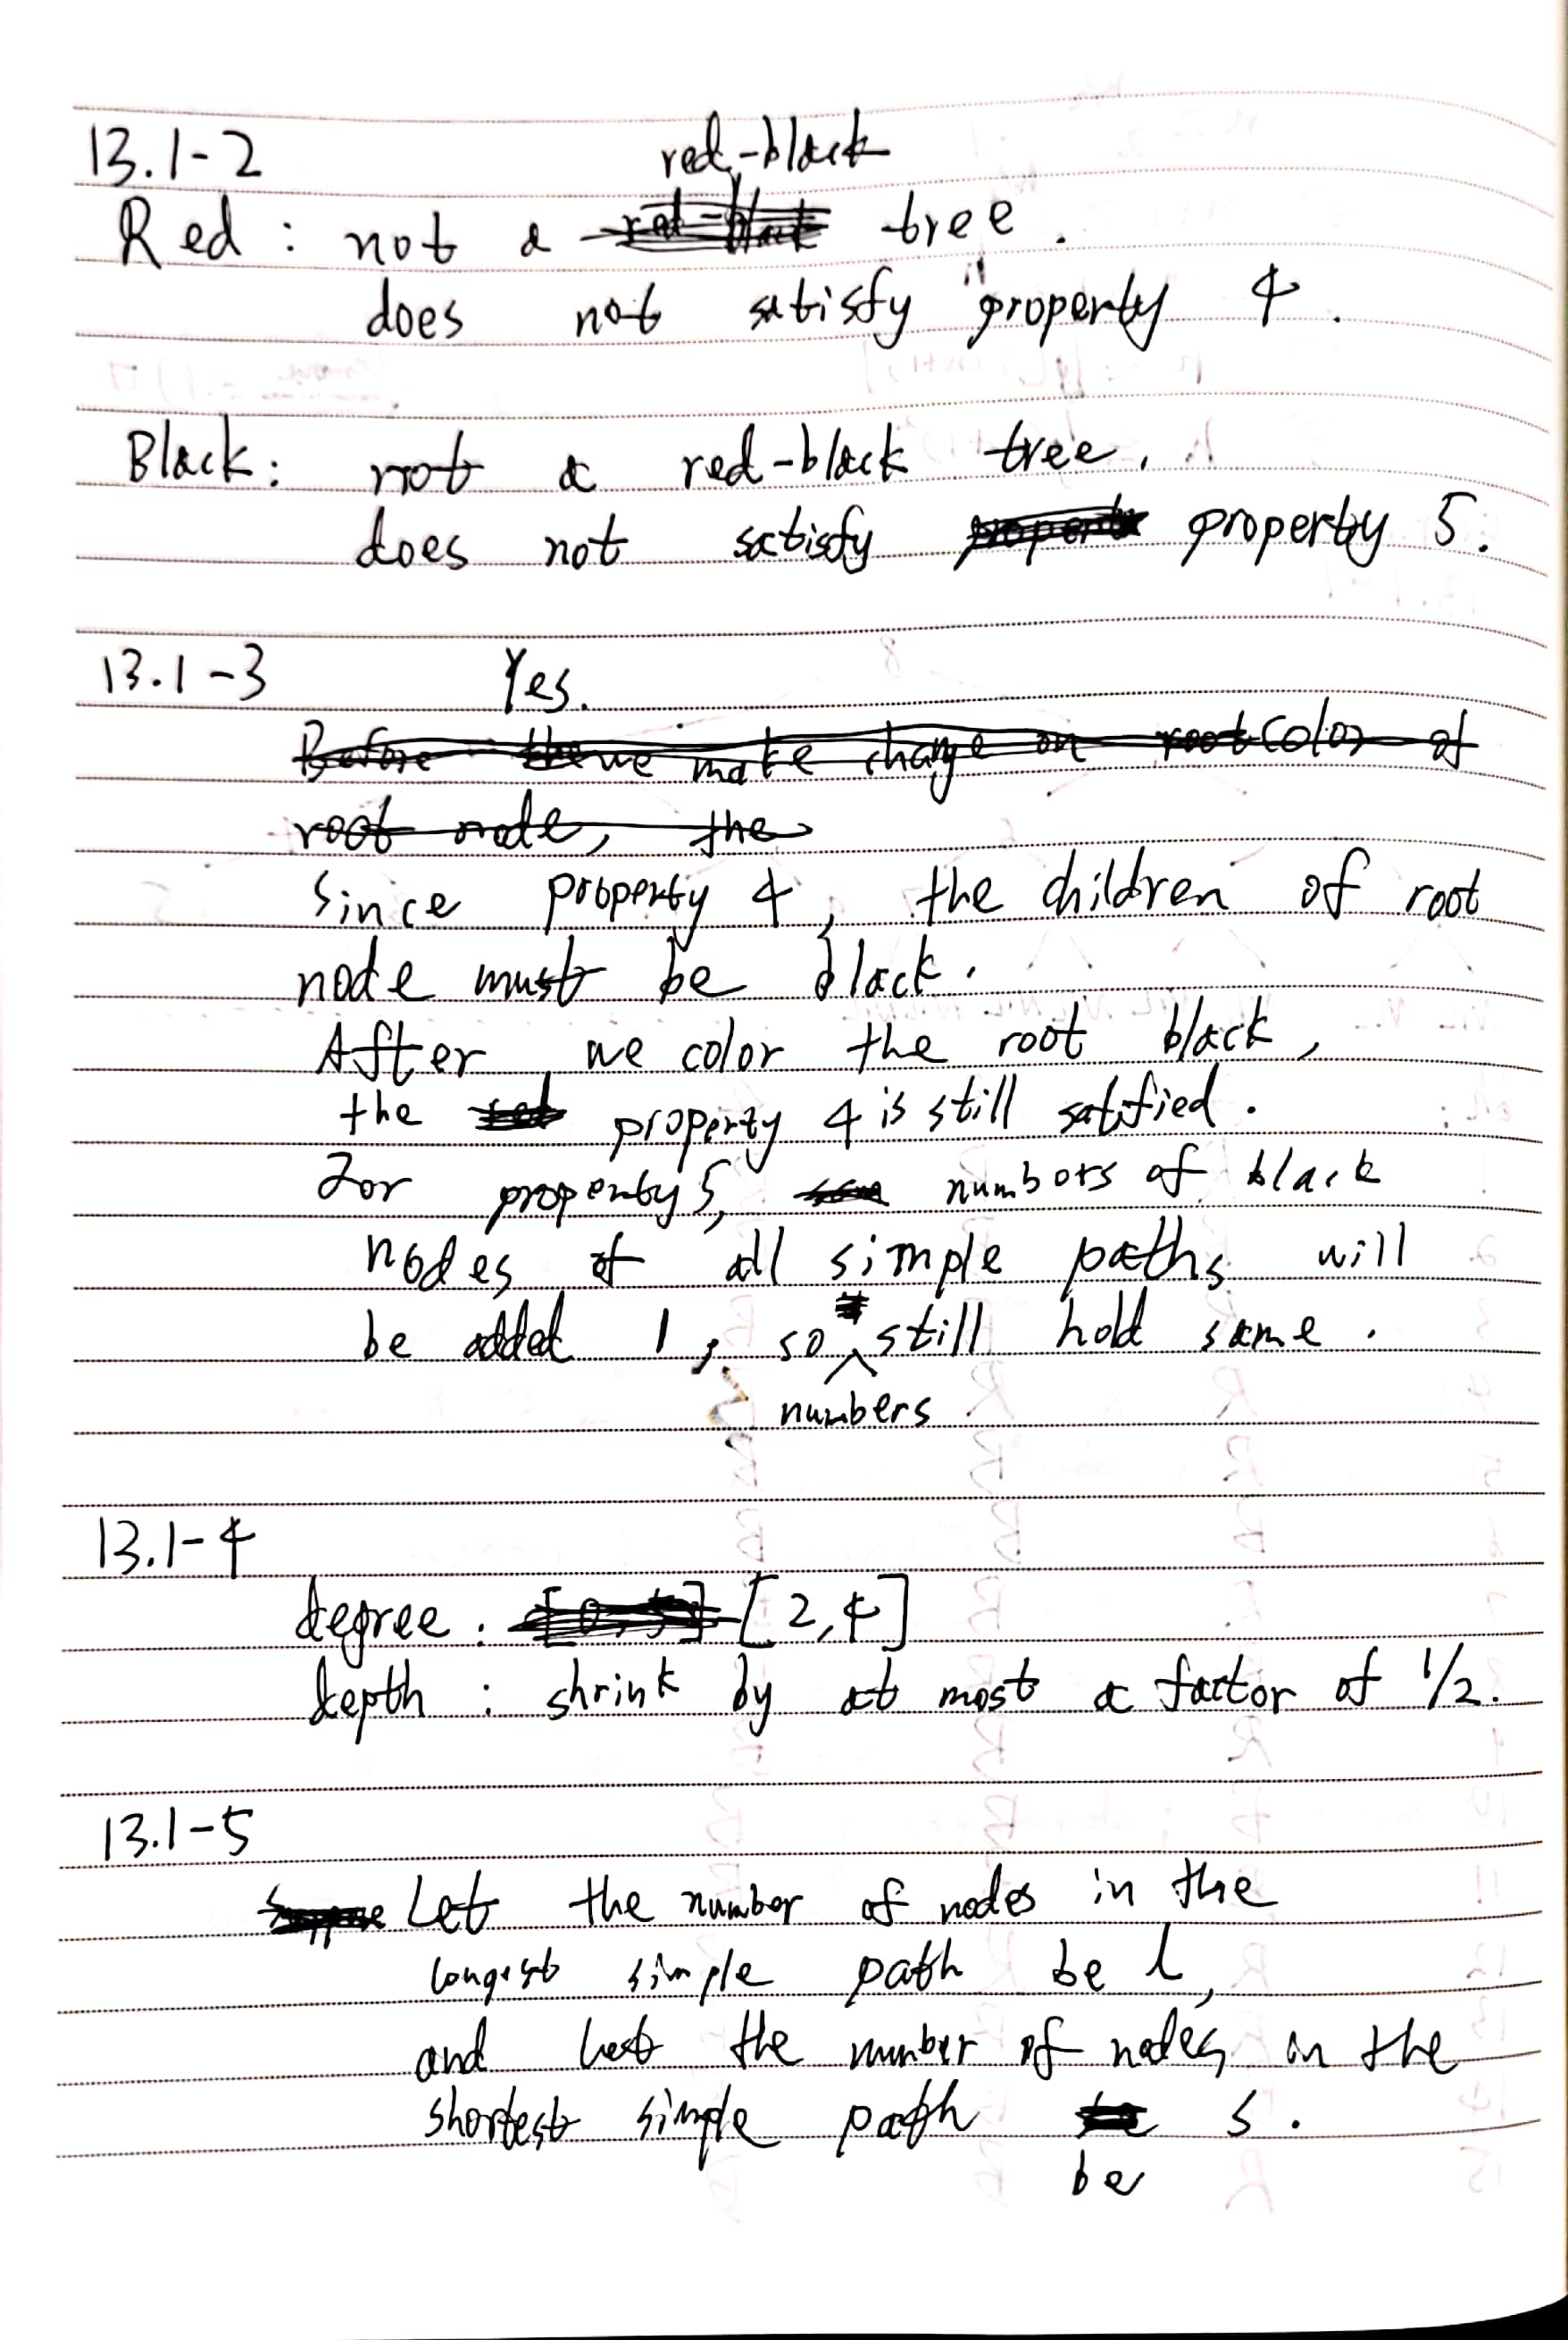 13.1-2
red-black
Red : not a red-black tree.
does not satisfy "property 4.
Black: not a red-black tree.
does not satisfy propert property 5.
13.1-3 Yes.
Before the we make change on root color of
root node, the
Since property 4, the children of root
node must be black.
After we color the root black,
the red property 4 is still satified.
For property 5, numbers of black
nodes of all simple paths will
be added 1, so still hold same.
numbers
13.1-4
degree: [2,4]
depth : shrink by at most a factor of 1/2.
13.1-5
Suppose Let the number of nodes in the
longest simple path be l,
and let the number of nodes in the
shortest simple path s.
be